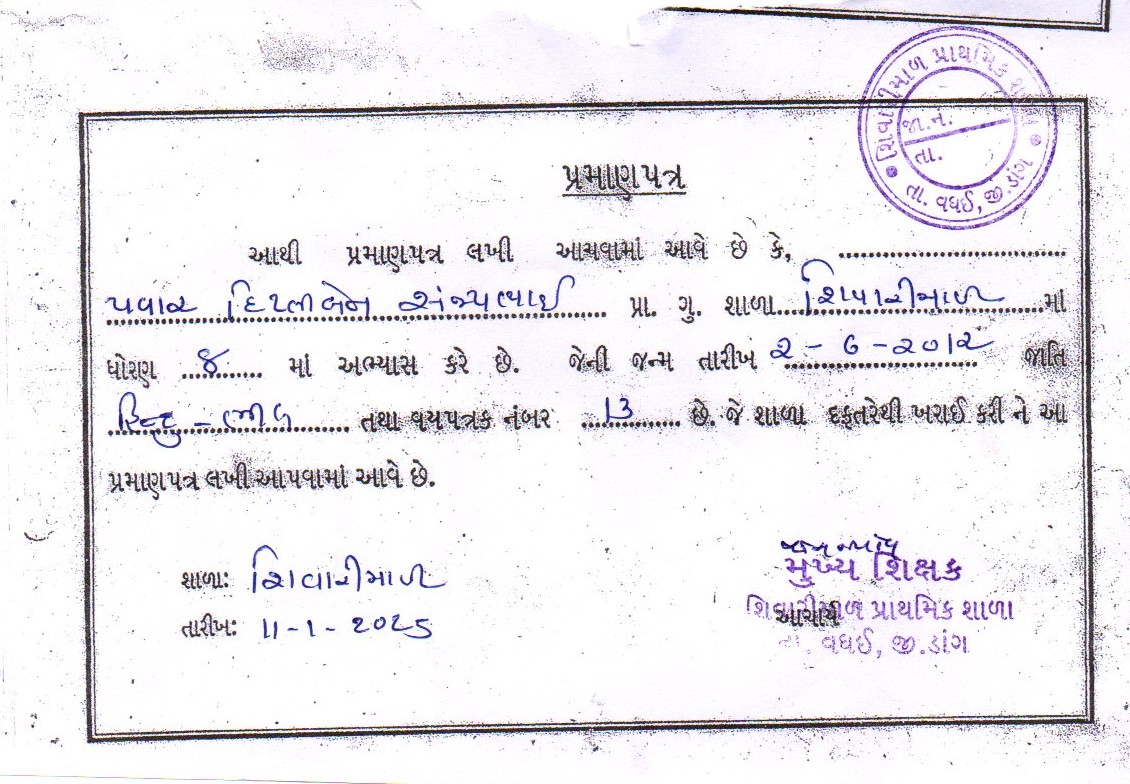 શિવારીમાળ પ્રાથમિક શાળા
જા.નં.
તા.
તા. વઘઈ, જી.ડાંગ
પ્રમાણપત્ર
આથી પ્રમાણપત્ર લખી આપવામાં આવે છે કે, ........................
પવાર દિપ્તીબેન સંજયભાઈ પ્રા. ગુ. શાળા શિવારીમાળ માં
ધોરણ ૪ માં અભ્યાસ કરે છે. જેની જન્મ તારીખ ૨ - ૬ - ૨૦૧૨ જાતિ
હિન્દુ - ભીલ તથા વયપત્રક નંબર 13 છે. જે શાળા દફતરેથી ખરાઈ કરી ને આ
પ્રમાણપત્ર લખી આપવામાં આવે છે.
શાળા: શિવારીમાળ
તારીખ: 11 - 1 - 2025
મુખ્ય શિક્ષક
શિવારીમાળ પ્રાથમિક શાળા
આચાર્ય
તા. વઘઈ, જી.ડાંગ